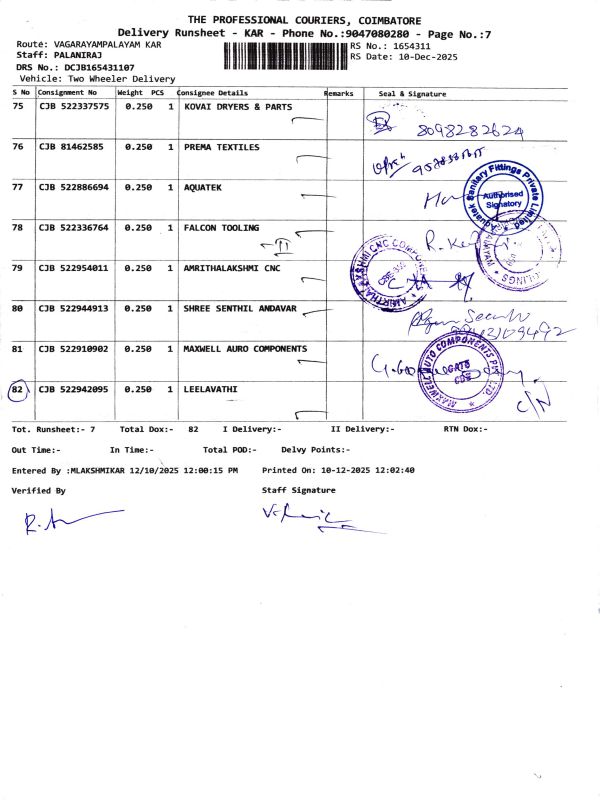 THE PROFESSIONAL COURIERS, COIMBATORE
Delivery Runsheet - KAR - Phone No.:9047080280 - Page No.:7
Route: VAGARAYAMPALAYAM KAR
RS No.: 1654311
Staff: PALANIRAJ
RS Date: 10-Dec-2025
DRS No.: DCJB165431107
Vehicle: Two Wheeler Delivery
S No Consignment No Weight PCS Consignee Details Remarks Seal & Signature
75 CJB 522337575 0.250 1 KOVAI DRYERS & PARTS
8098282624
76 CJB 81462585 0.250 1 PREMA TEXTILES
77 CJB 522886694 0.250 1 AQUATEK
Aquatek Sanitary Fittings Private Limited
Authorised
Signatory
78 CJB 522336764 0.250 1 FALCON TOOLING
79 CJB 522954011 0.250 1 AMRITHALAKSHMI CNC
80 CJB 522944913 0.250 1 SHREE SENTHIL ANDAVAR
81 CJB 522910902 0.250 1 MAXWELL AURO COMPONENTS
MAXWELL AUTO COMPONENTS PVT. LTD.
GATE
82 CJB 522942095 0.250 1 LEELAVATHI
C/N
Tot. Runsheet:- 7 Total Dox:- 82 I Delivery:- II Delivery:- RTN Dox:-
Out Time:- In Time:- Total POD:- Delvy Points:-
Entered By :MLAKSHMIKAR 12/10/2025 12:00:15 PM Printed On: 10-12-2025 12:02:40
Verified By Staff Signature